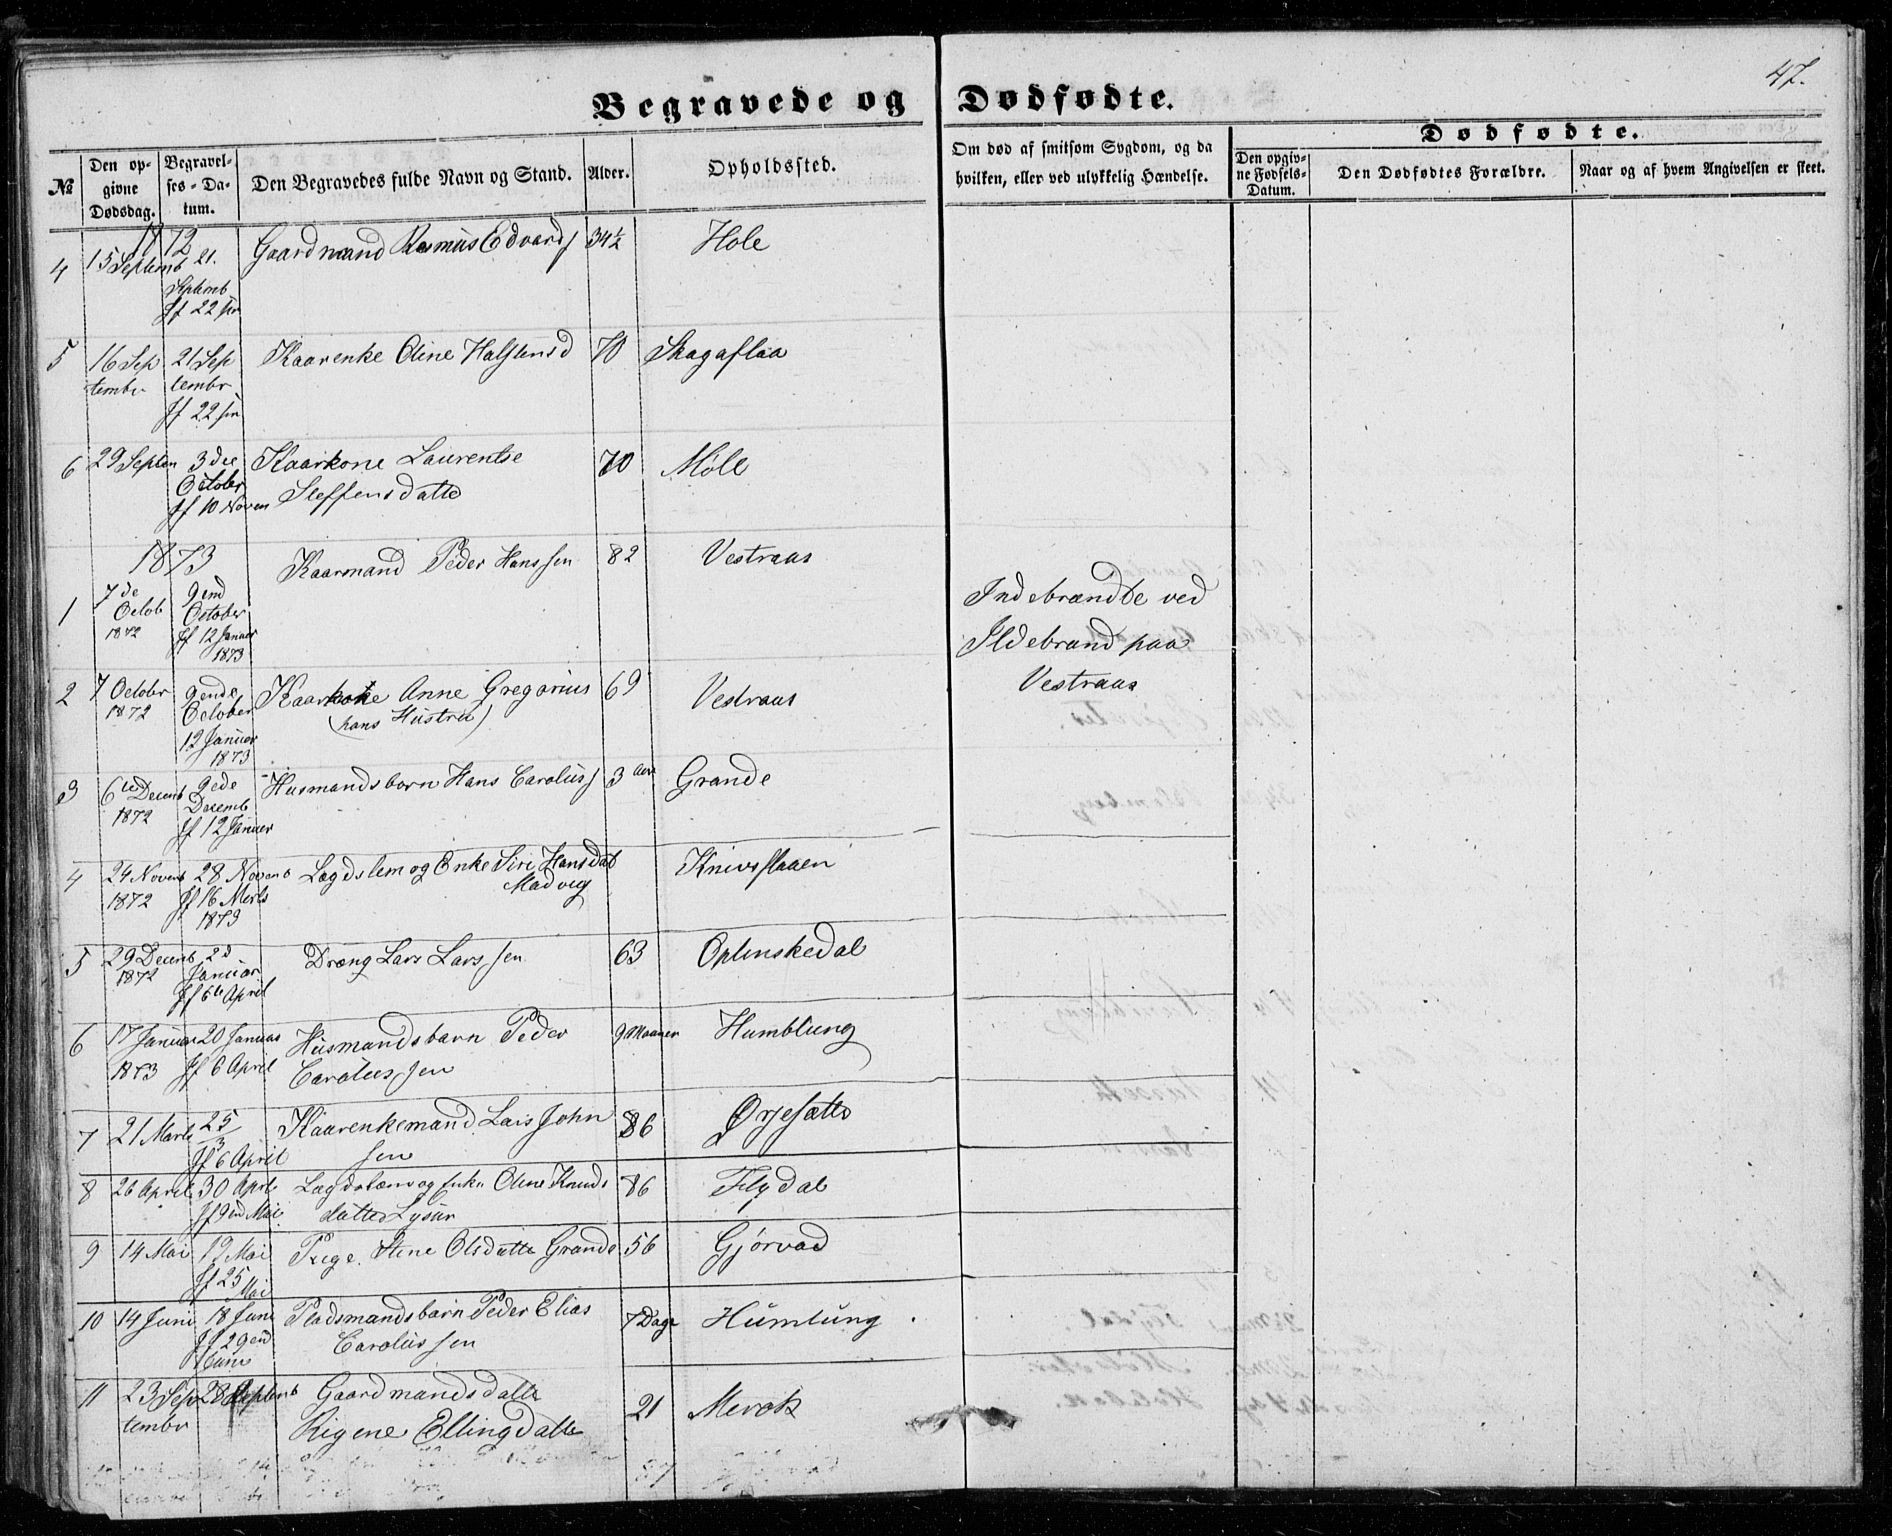 47.
Begravede og Dødfødte.
Dødfødte.
№
Den opgivne Dødsdag.
Begravelses-Datum.
Den Begravedes fulde Navn og Stand.
Alver.
Opholdssted.
Om død af smitsom Sygdom, og da hvilken, eller ved ulykkelig Hændelse.
Den opgivne Fødsels-Datum.
Den Dødfødtes Forældre.
Naar og af hvem Angivelsen er skeet.
1872
4 15 Septemb 21. Septemb Jf 22 Gaardmand Rasmus Edvards 34½ Hole
5 16 September 21 September Jf 22 Kaarenke Oline Halstensd 70 Skagaflaa
6 29 Septen 3die October Jf 10 Noven Kaarkone Laurentse Steffensdatte 70 Møll
1873
1 7de Octob 1872 9end October Jf 12 Januar 1873 Kaarmand Peder Hanssen 82 Vestraas
Indebrændte ved
Ildebrand paa
Vestraas
2 7 October 1872 9ende October 12 Januar 1873 Kaarkone Anne Gregorius (hans Hustru) 69 Vestraas
3 6te Decemb 1872 9ede Decemb Jf 12 Januar Husmandsbarn Hans Carolus 3 Grande
4 24 Novemb 1872 28 Novemb Jf 16 Marts 1873 Lægdslem og Enke Siri Hansdat Madvig Knivsflaaen
5 29 Decemb 1872 2d Januar Jf 6te April Dreng Lars Larssen 63 Oplenskedal
6 17 Januar 1873 20 Januar Jf 6 April Husmandsbarn Peder Carolussen 9 Maaner Humblung
7 21 Marts 25/3 Jf 6 April Kaarenkemand Lars Johnsen 86 Ørjesætte
8 26 April 30 April Jf 9 Mai Oline Knudsdatter 86 Flydal
9 14 Mai 19 Mai Jf 25 Mai Pige. Stine Olsdatte Grande 56 Gjørvad
10 14 Juni 18 Juni Jf 29 Juni Pladsmandsbarn Peder Elias Carolussen 7 Dage Humlung
11 23 September 28 Septemb Gaardmandsdatte Rigene Ellingdatte 21 Merok